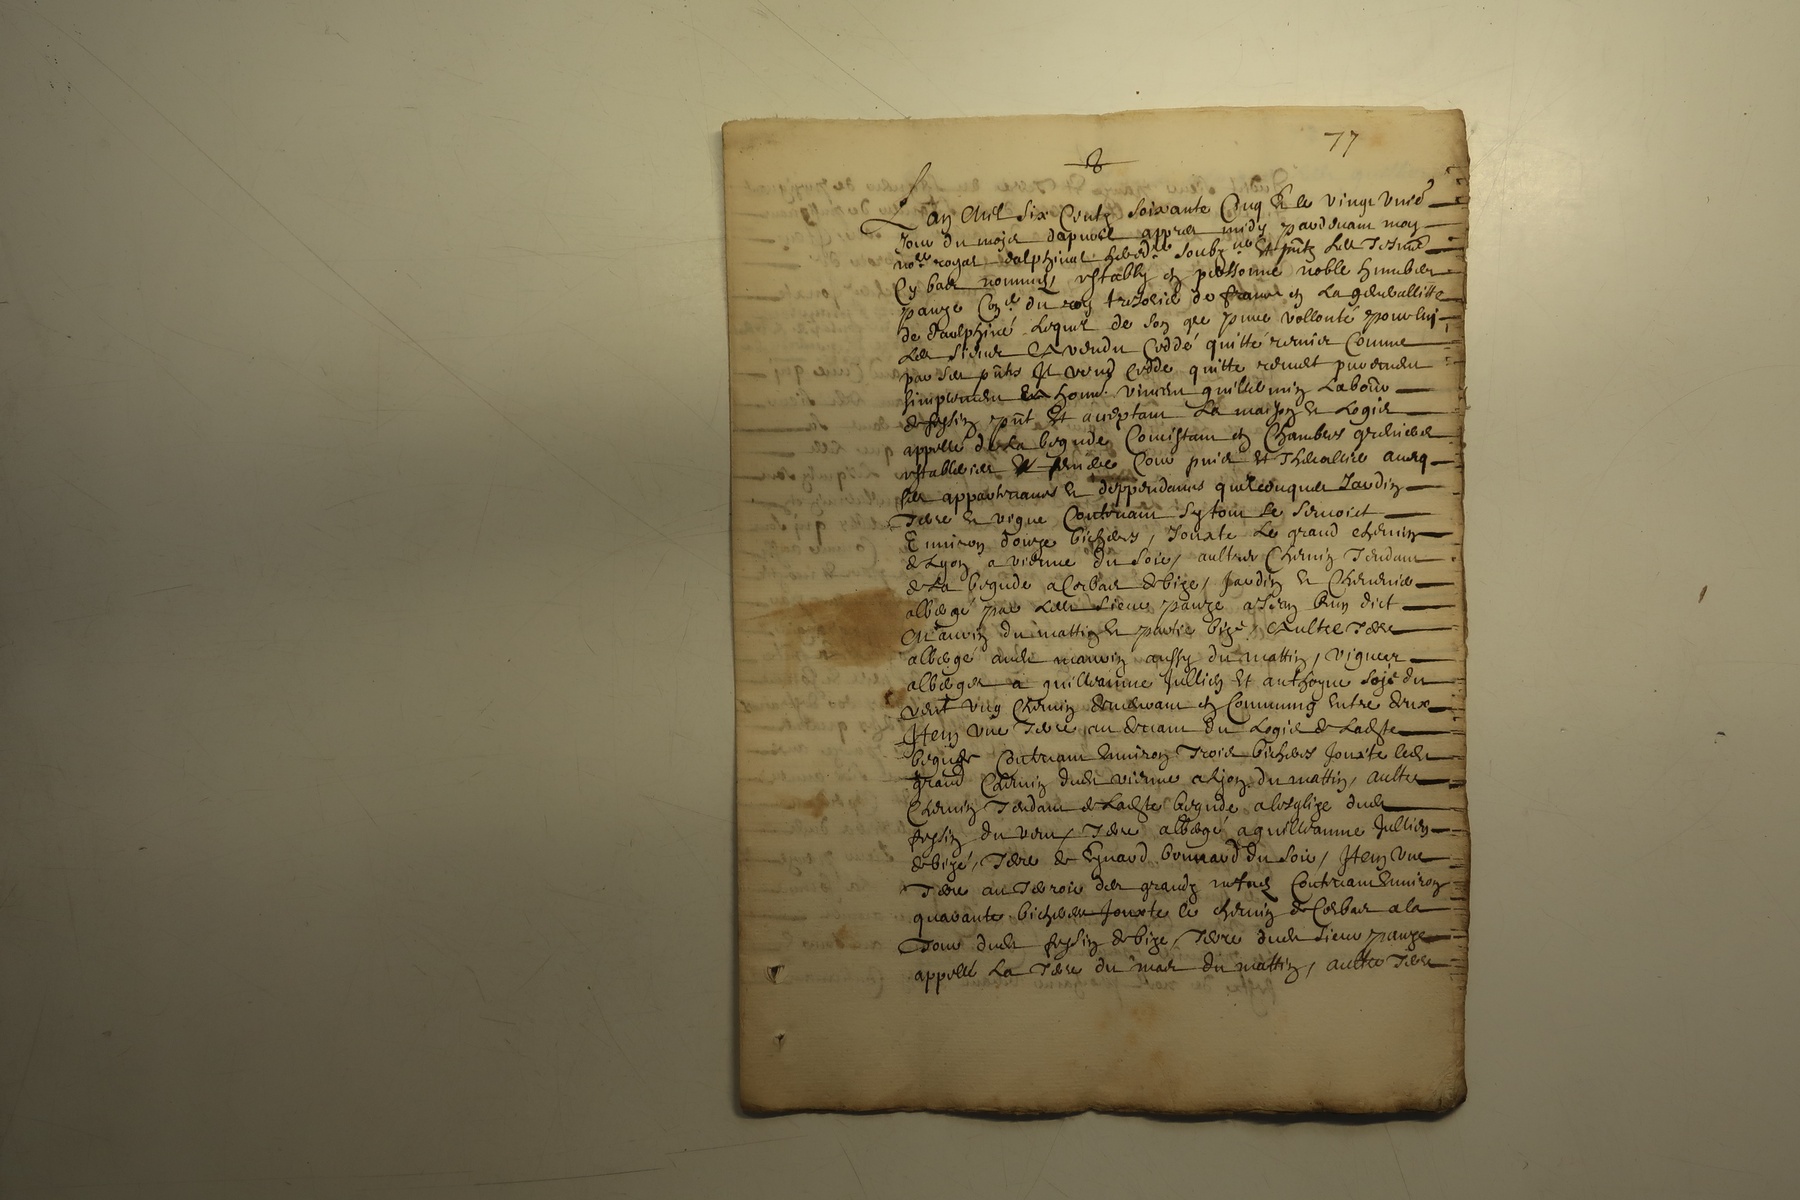 77
Lan Mil Six Centz Soixante Cinq Et le vingt uniesme
Jour du mois dapvril appres midy pardevant moy
no.re royal dalphinal hered.re soubz.ne Et pñtz les Tesmo
Cy bas nommes, estably en personne noble humber
pange Con.er du roy tresorier de france en La generallitte
de daulphiné Lequel de son gre pure vollonté pour luy
Les siens A vendu Ceddé quitté remis Comme
par ses pñtes Il vend cedde quitte remet purement
simplement a hon.e vincen guillermin Labour
de feysin pñt Et acceptant La maison Et Logis
appellé de La begude Concistant en Chambres greniers
estableries Et feniere Cour puis Et Thealliee avecq
ses appartenances Et deppendances quelconques Jardin
Terre Et vigne Contenant Le tout Le
Environ douze bicheres, Jouxte Le grand chemin
de Lyon a vienne du soir, aultre Chemin Tendant
de La begude a Corbas de bize, Jardin Et Cheneviere
albergé par Led.t sieur pange a Jean dict
Mauvin du mattin Et partie bize, Aultre Terre
albergé aud.t mauvin aussy du mattin, vignes
alberges a guilleaume Jullien Et anthoyne du
vent ung Chemin demeurant en Commung Entre deux
Item une Terre au devant du Logis de Ladite
begude Contenant Environ Trois bicheres Jouxte led.t
grand Chemin dud.t vienne a Lion du mattin, aultre
Chemin Tendant de Ladite begude a lesglize dud.t
feysin du vent, Terre albergé a guilleaume Jullien
de bize, Terre de Eynard bonnard du soir, Item une
Terre au Terroir des grandz Contenant Environ
quarante bicheres Jouxte le chemin de Corbas a la
Tour dud.t feysin de bize, Terre dud.t sieur pange
appellé La Terre du mas du mattin, aultre Terre